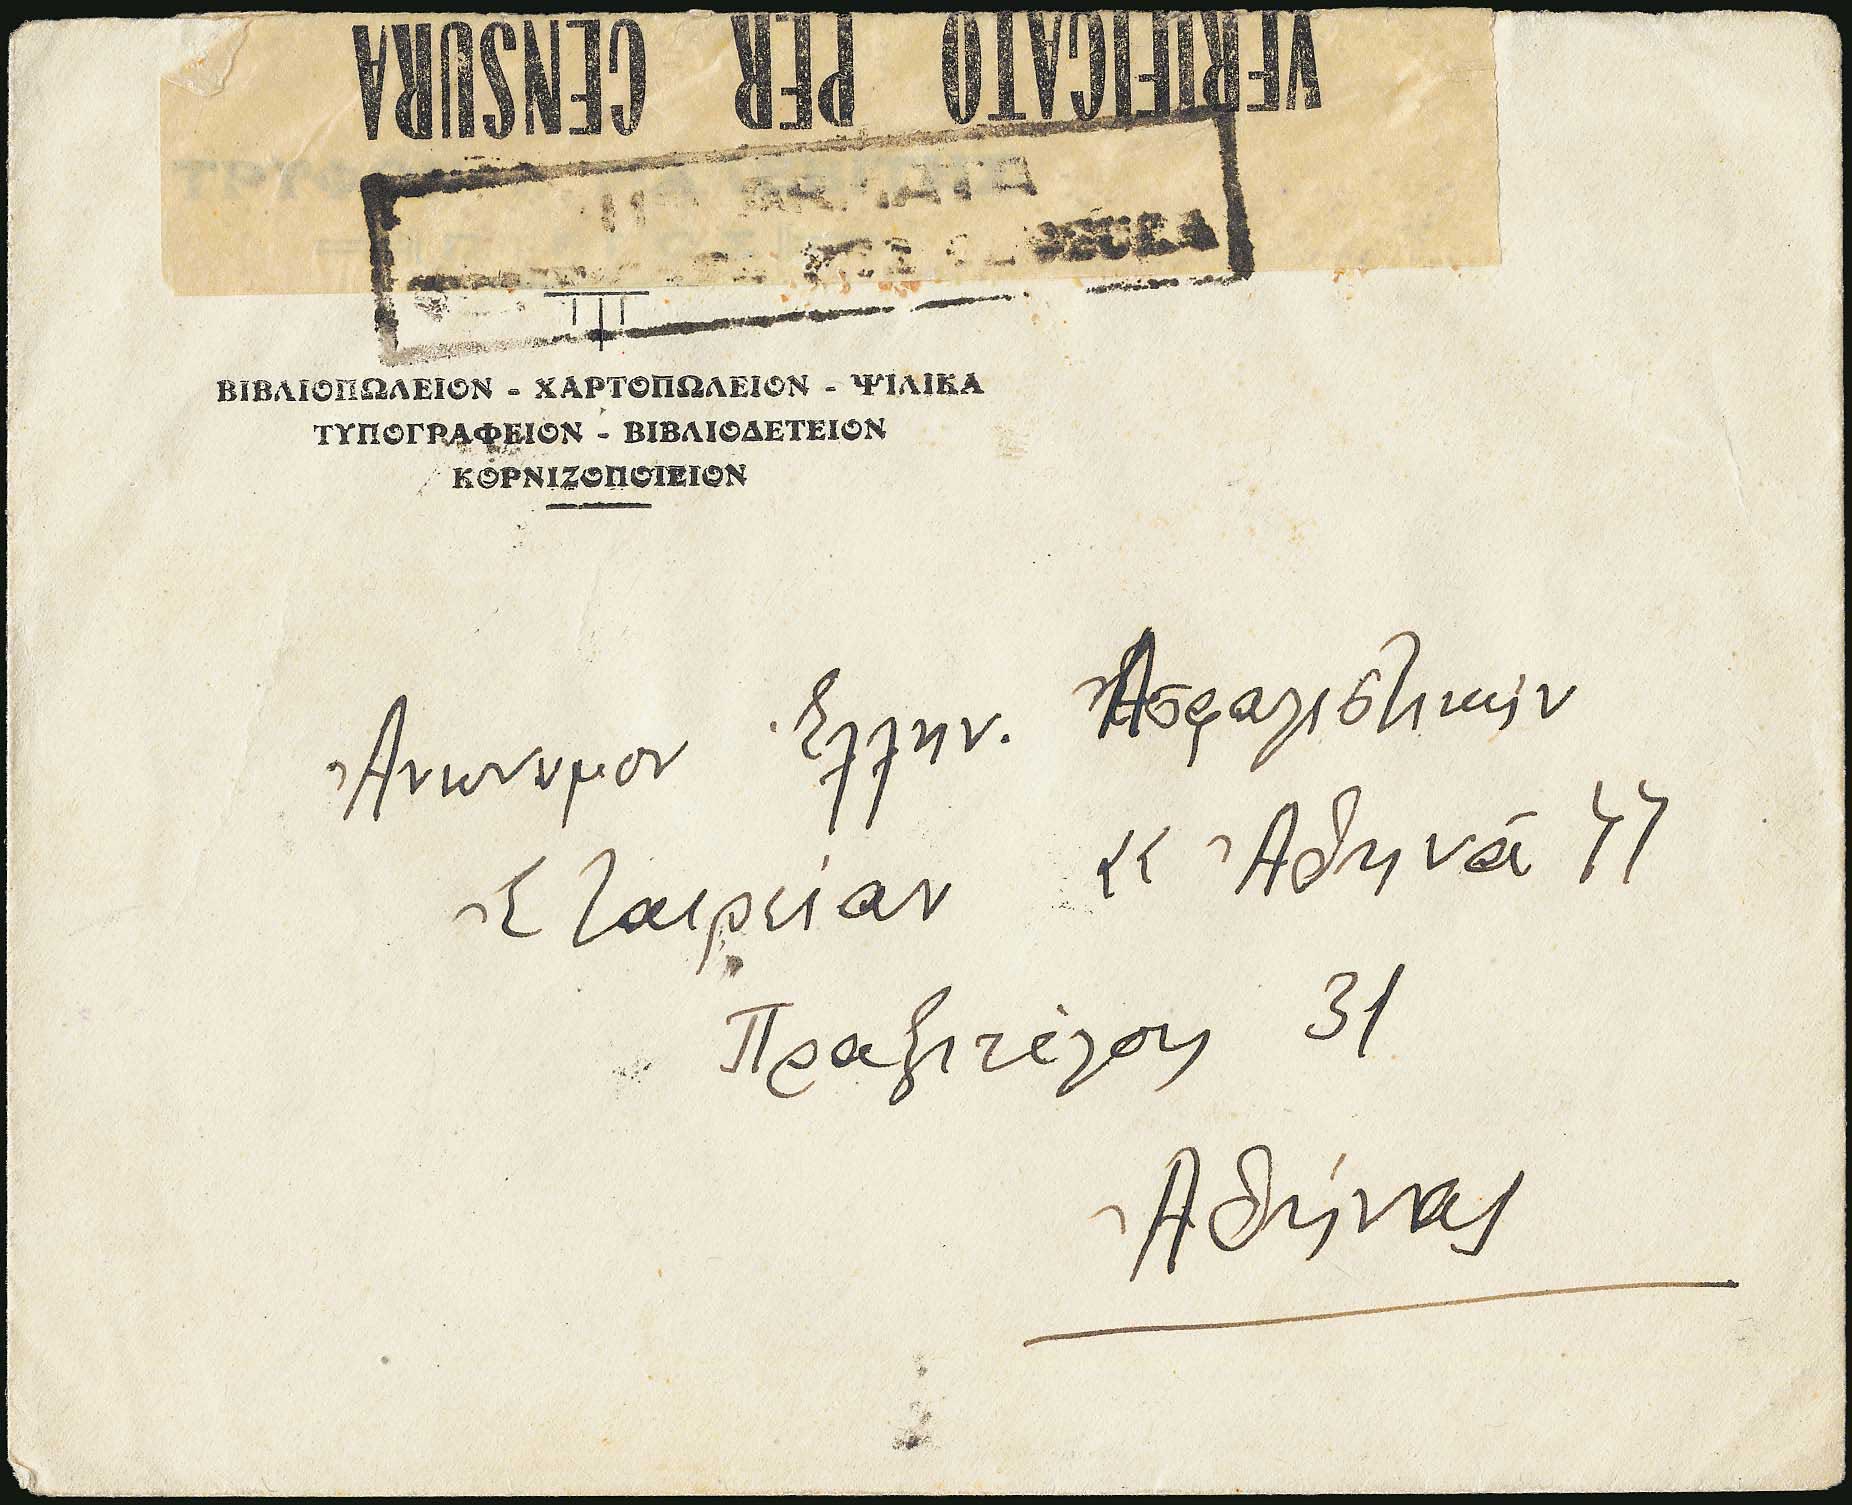 VERIFICATO PER CENSURA
ΒΙΒΛΙΟΠΩΛΕΙΟΝ - ΧΑΡΤΟΠΩΛΕΙΟΝ - ΨΙΛΙΚΑ
ΤΥΠΟΓΡΑΦΕΙΟΝ - ΒΙΒΛΙΟΔΕΤΕΙΟΝ
ΚΟΡΝΙΖΟΠΟΙΕΙΟΝ
Ἀνωνυμον Ἑλλην. Ἀσφαλιστικήν
Ἑταιρείαν « Ἀθηνά "
Πραξιτέλους 31
Ἀθήνας